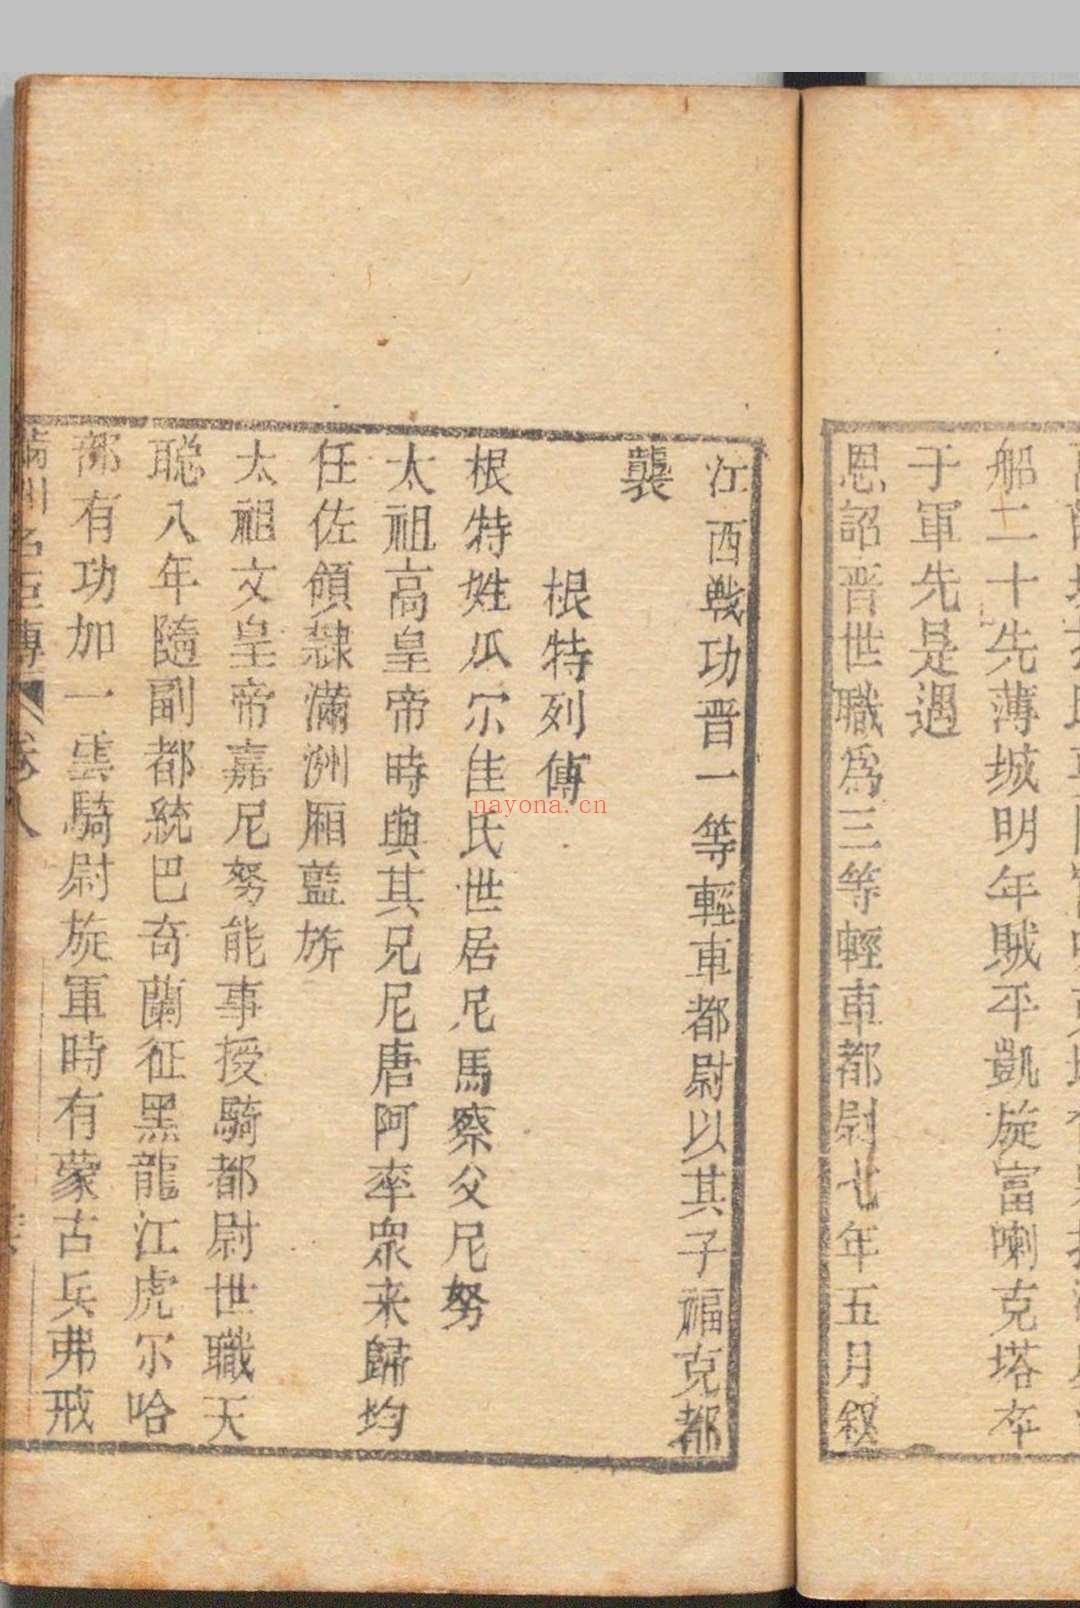 船二十先薄城明年賊平凱旋富喇克塔卒
于軍先是遇
恩詔晋世職為三等輕車都尉七年五月叙
江西戰功晋一等輕車都尉以其子福克都
襲
根特列傳
根特姓瓜尔佳氏世居尼馬察父尼努
太祖高皇帝時與其兄尼唐阿率衆来歸均
任佐領隸滿洲厢藍旂
太祖文皇帝嘉尼努能事授騎都尉世職天
聪八年隨副都統巴奇蘭征黑龍江虎尔哈
部有功加一雲騎尉旋軍時有蒙古兵弗戒
滿州名臣傳 卷八
nayona.cn